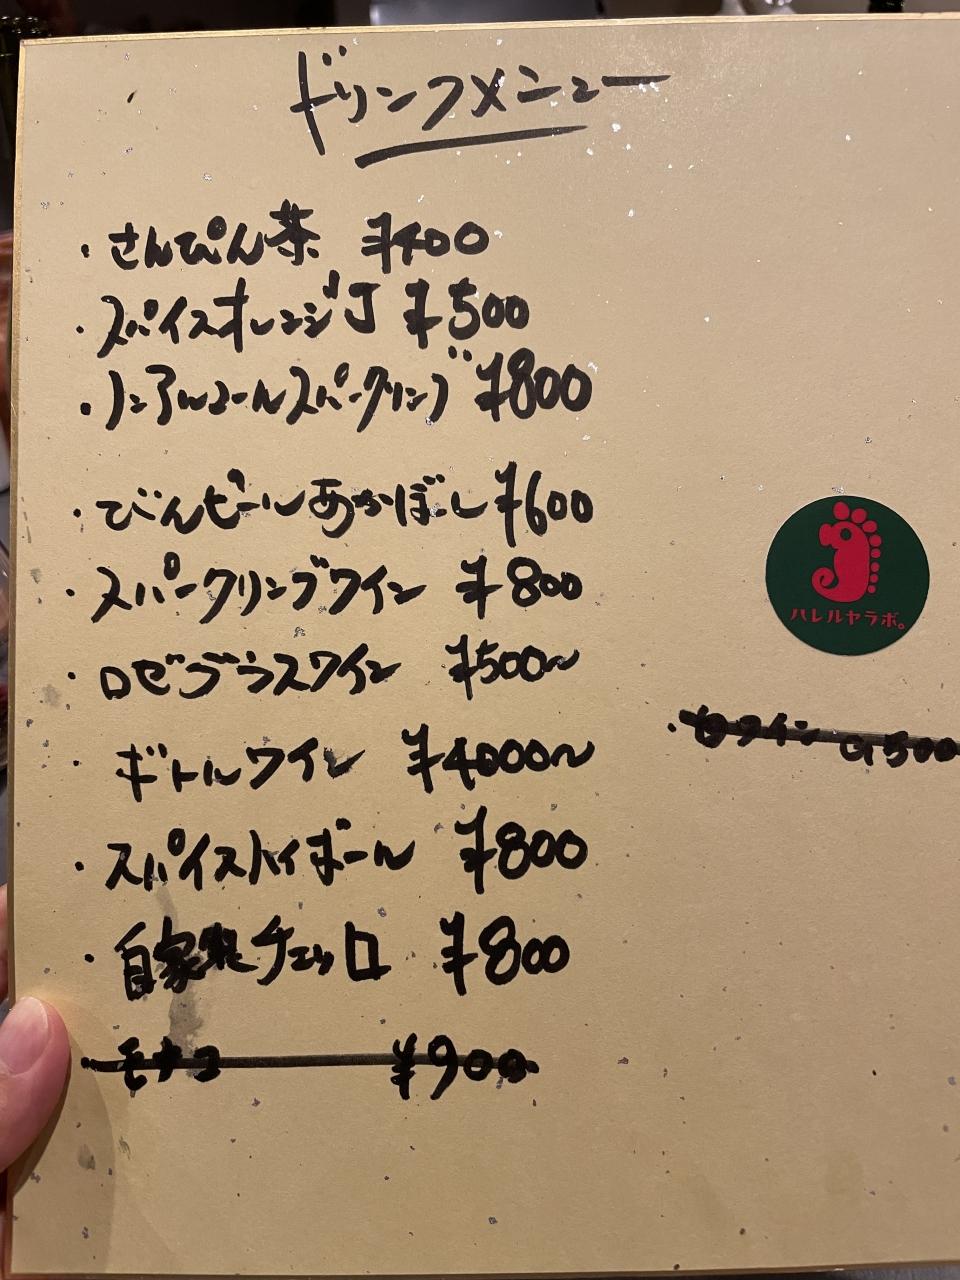 ドリンクメニュー
・さんぴん茶 ¥400
・スパイスオレンジJ ¥500
・ノンアルコールスパークリング ¥800
・びんビールあかぼし ¥600
・スパークリングワイン ¥800
・ロゼグラスワイン ¥500〜
・ボトルワイン ¥4000〜
・スパイスハイボール ¥800
・自家製チェッロ ¥800
・モナコ ¥900
ハレルヤラボ。
・白ワイン G500